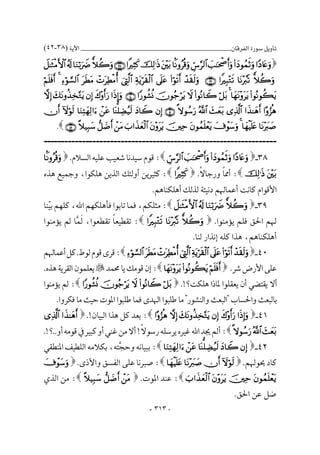 تأويل سورة الفرقان ــــــــ الآية (٣٨-٤٢)
﴿ وَعَادًا وَثَمُودَاْ وَأَصْحَٰبَ ٱلرَّسِّ وَقُرُونًۢا بَيْنَ ذَٰلِكَ كَثِيرًا ۝ وَكُلًّا ضَرَبْنَا لَهُ ٱلْأَمْثَٰلَ
وَكُلًّا تَبَّرْنَا تَتْبِيرًا ۝ وَلَقَدْ أَتَوْا۟ عَلَى ٱلْقَرْيَةِ ٱلَّتِىٓ أُمْطِرَتْ مَطَرَ ٱلسَّوْءِ ۚ أَفَلَمْ
يَكُونُوا۟ يَرَوْنَهَا ۚ بَلْ كَانُوا۟ لَا يَرْجُونَ نُشُورًا ۝ وَإِذَا رَأَوْكَ إِن يَتَّخِذُونَكَ إِلَّا
هُزُوًا أَهَٰذَا ٱلَّذِى بَعَثَ ٱللَّهُ رَسُولًا ۝ إِن كَادَ لَيُضِلُّنَا عَنْ ءَالِهَتِنَا لَوْلَآ أَن
صَبَرْنَا عَلَيْهَا ۚ وَسَوْفَ يَعْلَمُونَ حِينَ يَرَوْنَ ٱلْعَذَابَ مَنْ أَضَلُّ سَبِيلًا ۝ ﴾.
٣٨ـ﴿ وَعَادًا وَثَمُودَاْ وَأَصْحَٰبَ ٱلرَّسِّ ﴾ : قوم سيدنا شعيب عليه السلام. ﴿ وَقُرُونًۢا
بَيْنَ ذَٰلِكَ ﴾ : أمماً ورجالاً. ﴿ كَثِيرًا ﴾ : كثيرين أولئك الذين هلكوا، وجميع هذه
الأقوام كانت أعمالهم دنيئة لذلك أهلكناهم.
٣٩ـ﴿ وَكُلًّا ضَرَبْنَا لَهُ ٱلْأَمْثَٰلَ ﴾ : مثلكم، فما تابوا فأهلكهم الله، كلهم بيَّنا
لهم الحق فلم يؤمنوا. ﴿ وَكُلًّا تَبَّرْنَا تَتْبِيرًا ﴾ : تقطيعاً تقطعوا، لـمَّا لم يؤمنوا
أهلكناهم، هذا كله إنذار لنا.
٤٠ـ﴿ وَلَقَدْ أَتَوْا۟ عَلَى ٱلْقَرْيَةِ ٱلَّتِىٓ أُمْطِرَتْ مَطَرَ ٱلسَّوْءِ ﴾ : قرى قوم لوط. كل أعمالهم
على الأرض شر. ﴿ أَفَلَمْ يَكُونُوا۟ يَرَوْنَهَا ﴾ : إن قومك يا محمد ﷺ يعلمون القرية هذه.
ألا يقتضي أن يعقلوا لماذا هلكت؟!. ﴿ بَلْ كَانُوا۟ لَا يَرْجُونَ نُشُورًا ﴾ : لم يؤمنوا
بالبعث والحساب "البعث والنشور" ما طلبوا الهدى فما طلبوا الموت حيث ما فكروا.
٤١ـ﴿ وَإِذَا رَأَوْكَ إِن يَتَّخِذُونَكَ إِلَّا هُزُوًا ﴾ : بعد كل هذا البيان!. ﴿ أَهَٰذَا ٱلَّذِى
بَعَثَ ٱللَّهُ رَسُولًا ﴾ : ألم يجد الله غيره يرسله رسولاً! ألا من غني أو كبير في قومه أو..؟!.
٤٢ـ﴿ إِن كَادَ لَيُضِلُّنَا عَنْ ءَالِهَتِنَا ﴾ : ببيانه وحجَّته، بكلامه اللطيف المنطقي
كاد يحولهم. ﴿ لَوْلَآ أَن صَبَرْنَا عَلَيْهَا ﴾ : صبرنا على الفسق والأذى. ﴿ وَسَوْفَ
يَعْلَمُونَ حِينَ يَرَوْنَ ٱلْعَذَابَ ﴾ : عند الموت. ﴿ مَنْ أَضَلُّ سَبِيلًا ﴾ : من الذي
ضل عن الحق.
- ٣١٣ -